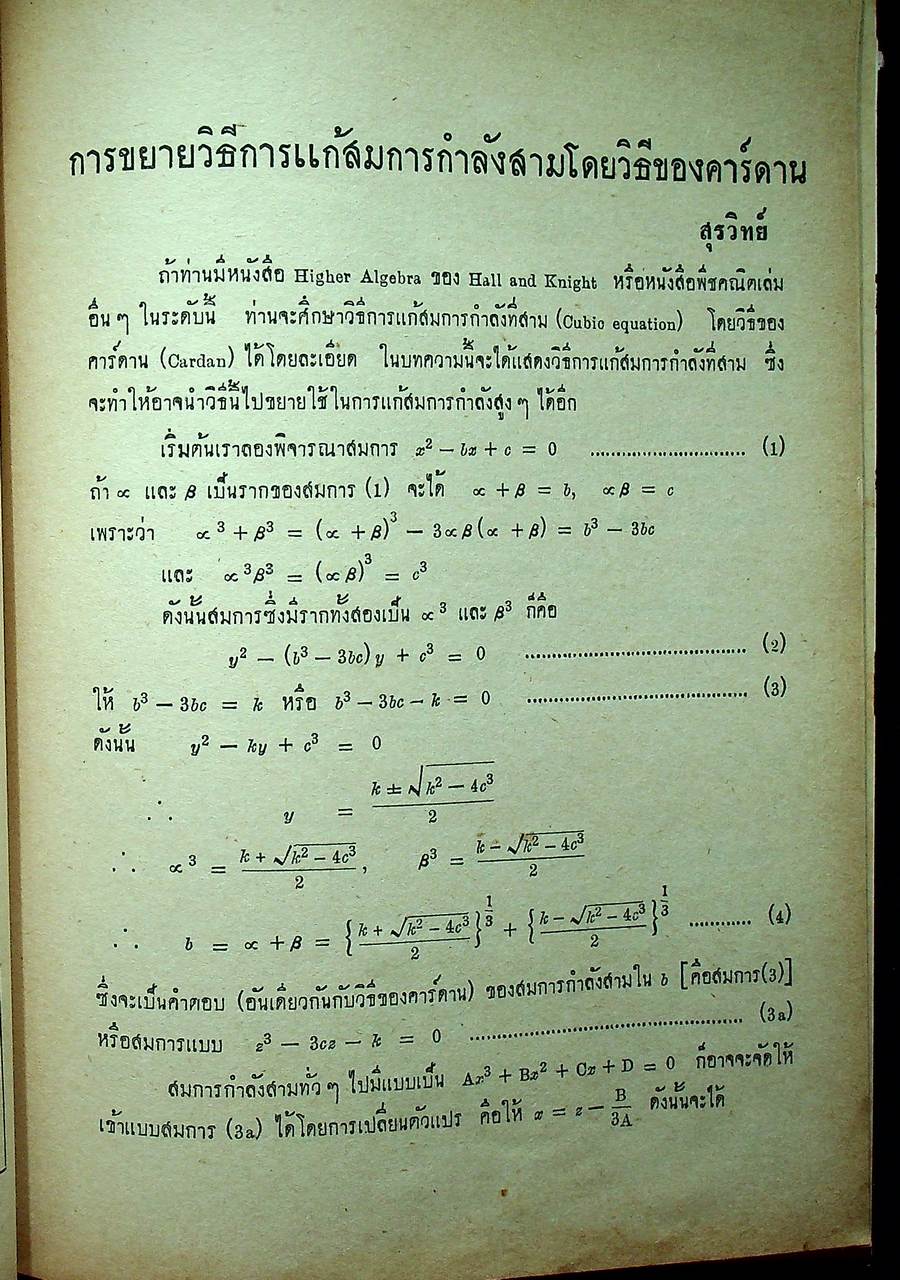 การขยายวิธีการแก้สมการกำลังสามโดยวิธีของคาร์ดาน
สุรวิทย์
ถ้าท่านมีหนังสือ Higher Algebra ของ Hall and Knight หรือหนังสือพีชคณิตเล่ม
อื่น ๆ ในระดับนี้ ท่านจะศึกษาวิธีการแก้สมการกำลังที่สาม (Cubic equation) โดยวิธีของ
คาร์ดาน (Cardan) ได้โดยละเอียด ในบทความนี้จะได้แสดงวิธีการแก้สมการกำลังที่สาม ซึ่ง
จะทำให้อาจนำวิธีนี้ไปขยายใช้ในการแก้สมการกำลังสูง ๆ ได้อีก
เริ่มต้นเราลองพิจารณาสมการ x² − bx + c = 0 ............................ (1)
ถ้า ∝ และ β เป็นรากของสมการ (1) จะได้ ∝ + β = b, ∝β = c
เพราะว่า ∝³ + β³ = (∝ + β)³ − 3∝β(∝ + β) = b³ − 3bc
และ ∝³β³ = (∝β)³ = c³
ดังนั้นสมการซึ่งมีรากทั้งสองเป็น ∝³ และ β³ ก็คือ
y² − (b³ − 3bc)y + c³ = 0 ........................................ (2)
ให้ b³ − 3bc = k หรือ b³ − 3bc − k = 0 ........................................ (3)
ดังนั้น y² − ky + c³ = 0
∴ y = (k ± √(k² − 4c³))/2
∴ ∝³ = (k + √(k² − 4c³))/2, β³ = (k − √(k² − 4c³))/2
∴ b = ∝ + β = {(k + √(k² − 4c³))/2}^(1/3) + {(k − √(k² − 4c³))/2}^(1/3) ........... (4)
ซึ่งจะเป็นคำตอบ (อันเดียวกันกับวิธีของคาร์ดาน) ของสมการกำลังสามใน b [คือสมการ(3)]
หรือสมการแบบ z³ − 3cz − k = 0 .................................................. (3a)
สมการกำลังสามทั่ว ๆ ไปมีแบบเป็น Ax³ + Bx² + Cx + D = 0 ก็อาจจะจัดให้
เข้าแบบสมการ (3a) ได้โดยการเปลี่ยนตัวแปร คือให้ x = z − B/3A ดังนั้นจะได้